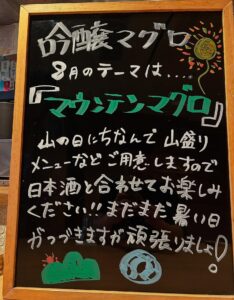 吟醸マグロ
8月のテーマは....
『マウンテンマグロ』
山の日にちなんで 山盛り
メニューなど ご用意しますので
日本酒と合わせてお楽しみ
ください!! まだまだ 暑い日
がつづきますが 頑張りましょ!